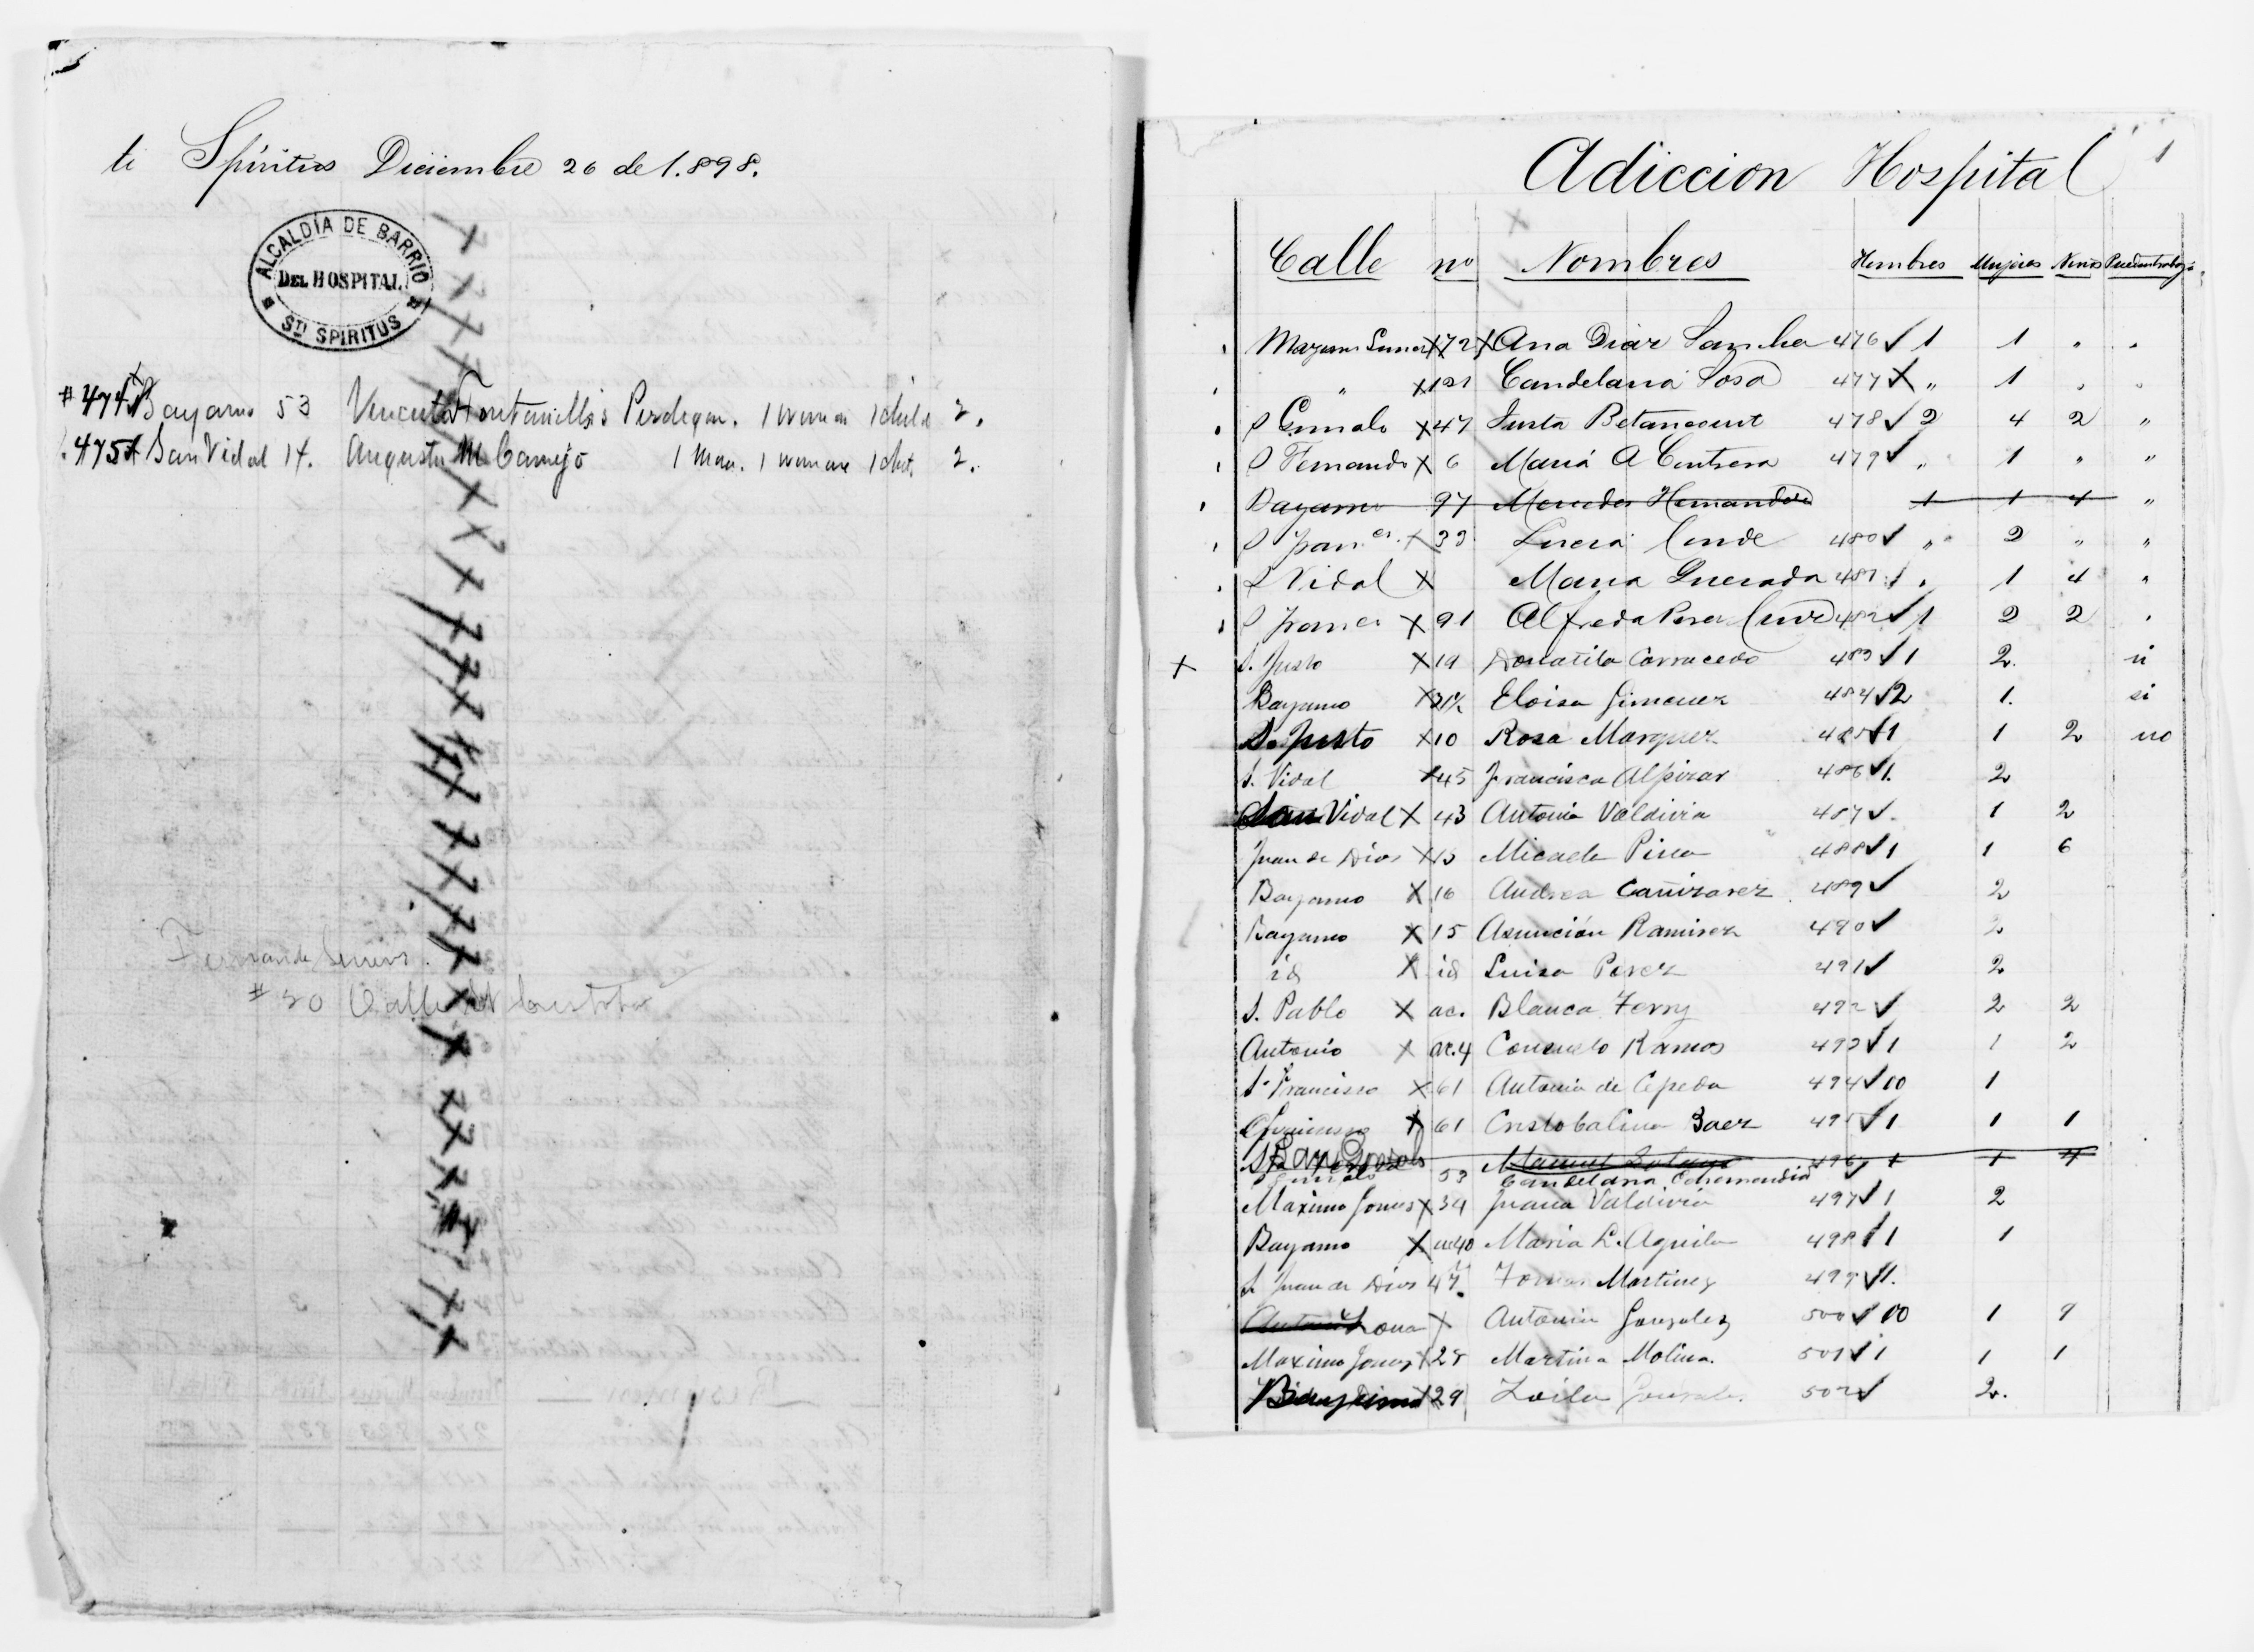 ti Spiritus Diciembre 26 de 1.898.
ALCALDÍA DE BARRIO
DEL HOSPITAL
STI SPIRITUS
#474 Bayamo 53 Fontanills Perdigon. 1 woman 1 child 2.
475 San Vidal 14. Augusta M Camejo 1 man. 1 woman 1 chd. 2.
Fernande
#20 Calle
Adiccion Hospital 1
Calle no Nombres Hombres Mujeres Niños
172 Ana Diaz 476 1 1 " "
" 121 Candelaria Sosa 477 " 1 " "
S Gonzalo 47 Justa Betancourt 478 2 4 2 "
S Fernando 6 Maria A Contrera 479 " 1 " "
Bayamo 97 Mercedes Hernandez 1 1 4 "
S Fran.co 33 Lucia Conde 480 " 2 " "
S Vidal Maria Quesada 481 " 1 4 "
S Franco 91 Alfreda Perez 482 1 2 2 "
S. Justo 19 Donatila Carracedo 483 1 2.
Bayamo 31½ Eloisa Gimenez 484 2 1. si
S. Justo 10 Rosa Marquez 485 1 1 2 no
S. Vidal 45 Francisca Alpizar 486 1. 2
San Vidal 43 Antonia Valdivia 487 1 2
Juan de Dios 15 Micaela 488 1 1 6
Bayamo 16 Andrea Cañizarez 489 2
Bayamo 15 Asunción Ramirez 490 2
id id Luisa Perez 491 2
S. Pablo ac. Blanca Ferry 492 2 2
Antonio ac. 4 Consuelo Ramos 493 1 1 2
S. Francisco 61 Antonia de Cepeda 494 00 1
61 Cristobalina Baez 495 1 1 1
San Gonzalo
53 Manuel 496 1 1 4
Candelaria Echemendia
Maximo Gomes 34 Juana Valdivia 497 1 2
Bayamo ac 40 Maria L. Aguila 498 1 1
S. Juan de Dios 47. Martinez 499 1.
Lona Antonia Gonzalez 500 00 1 9
Maximo Gomez 28 Martina Molina. 501 1 1 1
Bayamo 29 Zoila Gonzalez. 502 2.